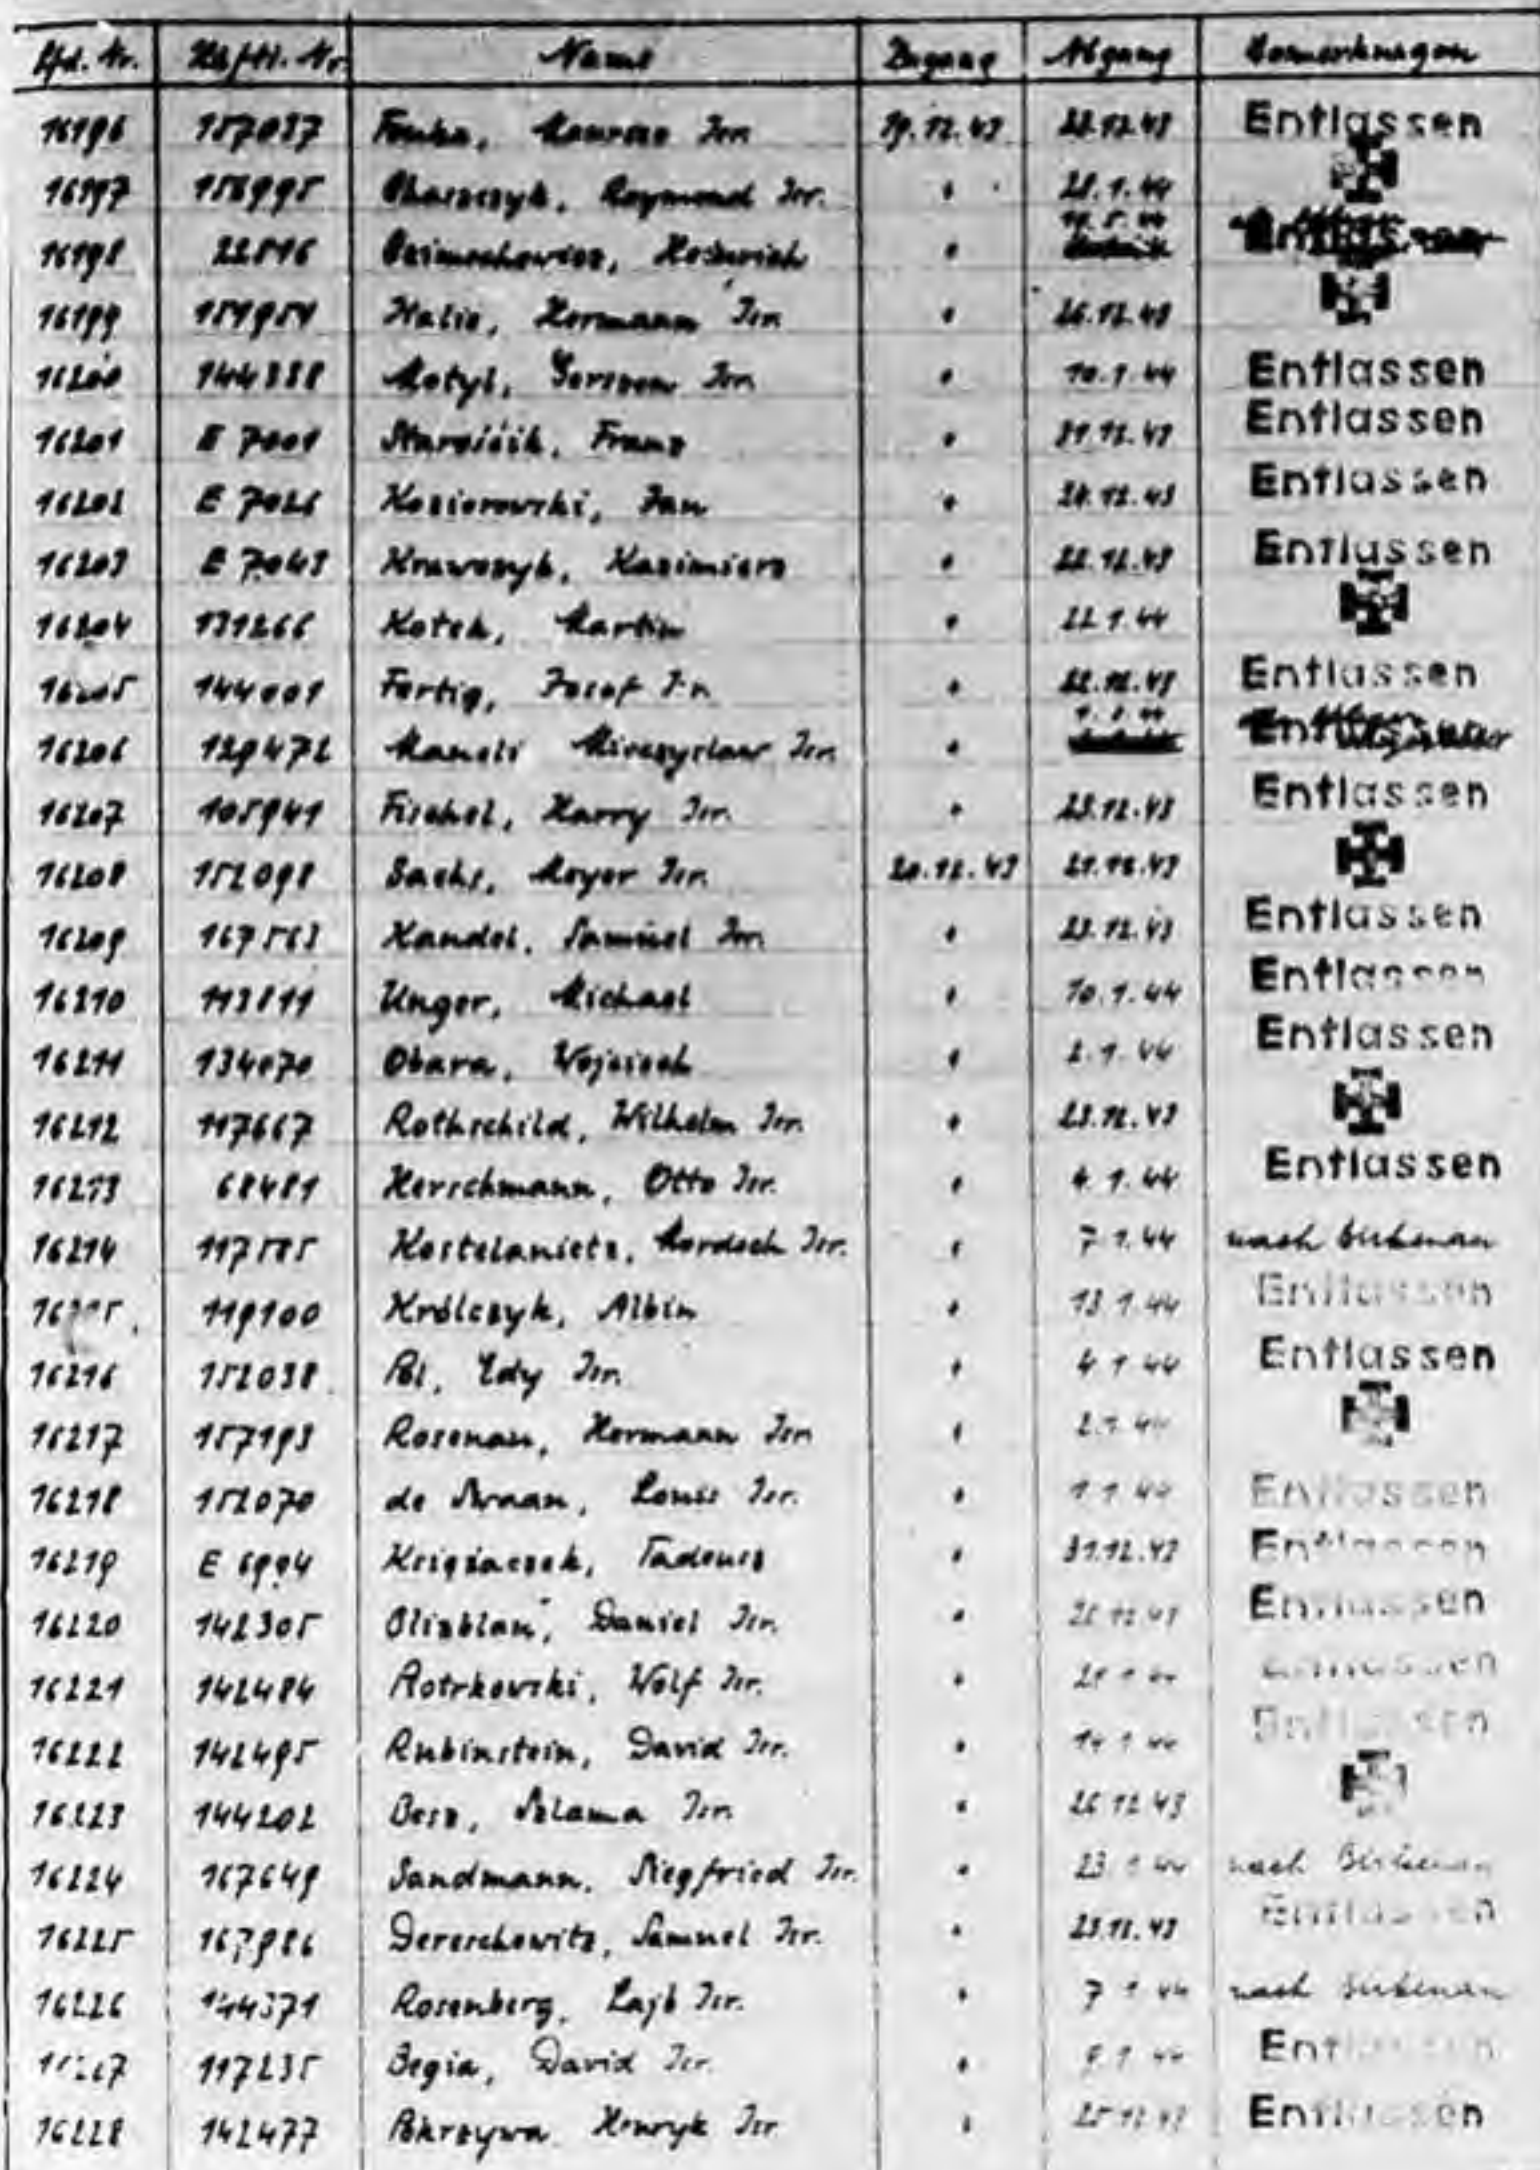 Lfd. Nr. Häftl. Nr. Name Zugang Abgang Bemerkungen
16196 157037 Isr. 19.12.43 22.12.43 Entlassen
16197 Raymond Isr. " 28.1.44
16198 22816 Heinrich "
16199 151951 Italie, Hermann Isr. " 26.12.43
16200 144338 Motyl, Isr. " 10.1.44 Entlassen
16201 E 7001 Franz " 31.12.43 Entlassen
16202 E 7026 Kosiorowski, Jan " 28.12.43 Entlassen
16203 E 7043 Krawczyk, Kazimierz " 22.12.43 Entlassen
16204 131266 Kotek, Martin " 22.1.44
16205 144001 Fertig, Josef Isr. " 22.12.43 Entlassen
16206 129472 Isr. "
16207 105941 Fischel, Harry Isr. " 23.12.43 Entlassen
16208 152098 Sachs, Meyer Isr. 20.12.43 21.12.43
16209 167563 Handel, Samuel Isr. " 23.12.43 Entlassen
16210 113811 Unger, Michael " 10.1.44 Entlassen
16211 134070 Obara, Wojciech " 2.1.44 Entlassen
16212 117667 Rothschild, Wilhelm Isr. " 23.12.43
16213 68481 Herschmann, Otto Isr. " 4.1.44 Entlassen
16214 117585 Kostelanietz, Mordsch Isr. " 7.1.44 nach Birkenau
119100 Królczyk, Albin " 13.1.44 Entlassen
16216 152038 Pol, Edy Isr. " 4.1.44 Entlassen
16217 157193 Rosenau, Hermann Isr. " 2.1.44
16218 152070 de Swaan, Louis Isr. " 1.1.44 Entlassen
16219 E 6994 Tadeusz " 31.12.43 Entlassen
16220 142305 Daniel Isr. " Entlassen
16221 142484 Wolf Isr. " Entlassen
16222 142495 Rubinstein, David Isr. " 14.1.44 Entlassen
16223 144202 Szlama Isr. " 26.12.43
16224 167649 Sandmann, Siegfried Isr. " 23.1.44 nach Birkenau
16225 167986 Dererchowitz, Samuel Isr. " 23.12.43 Entlassen
16226 144371 Rosenberg, Lajb Isr. " 7.1.44 nach Birkenau
117235 Begia, David Isr. " Entlassen
16228 142477 Henryk Isr. " 25.12.43 Entlassen